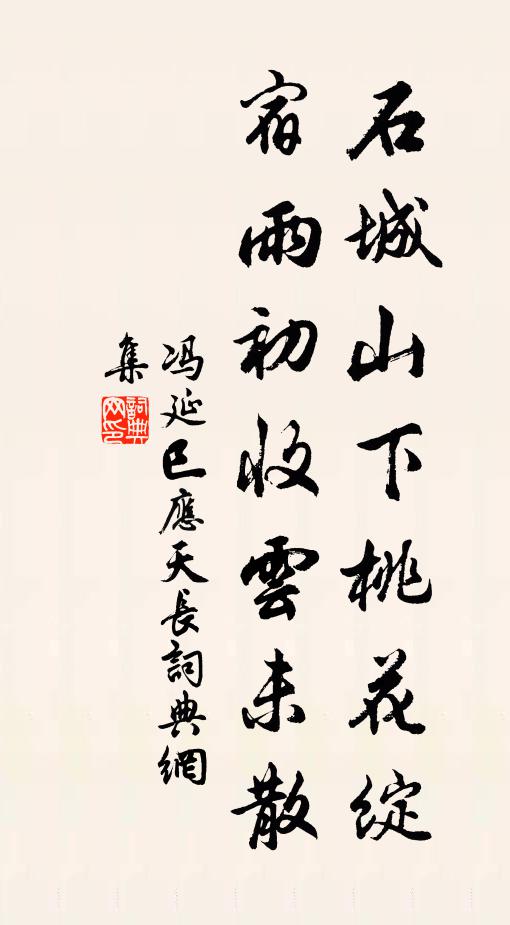 石城山下桃花綻
宿雨初收雲未散
冯延巳應天長詞典網
集
詞典
网印